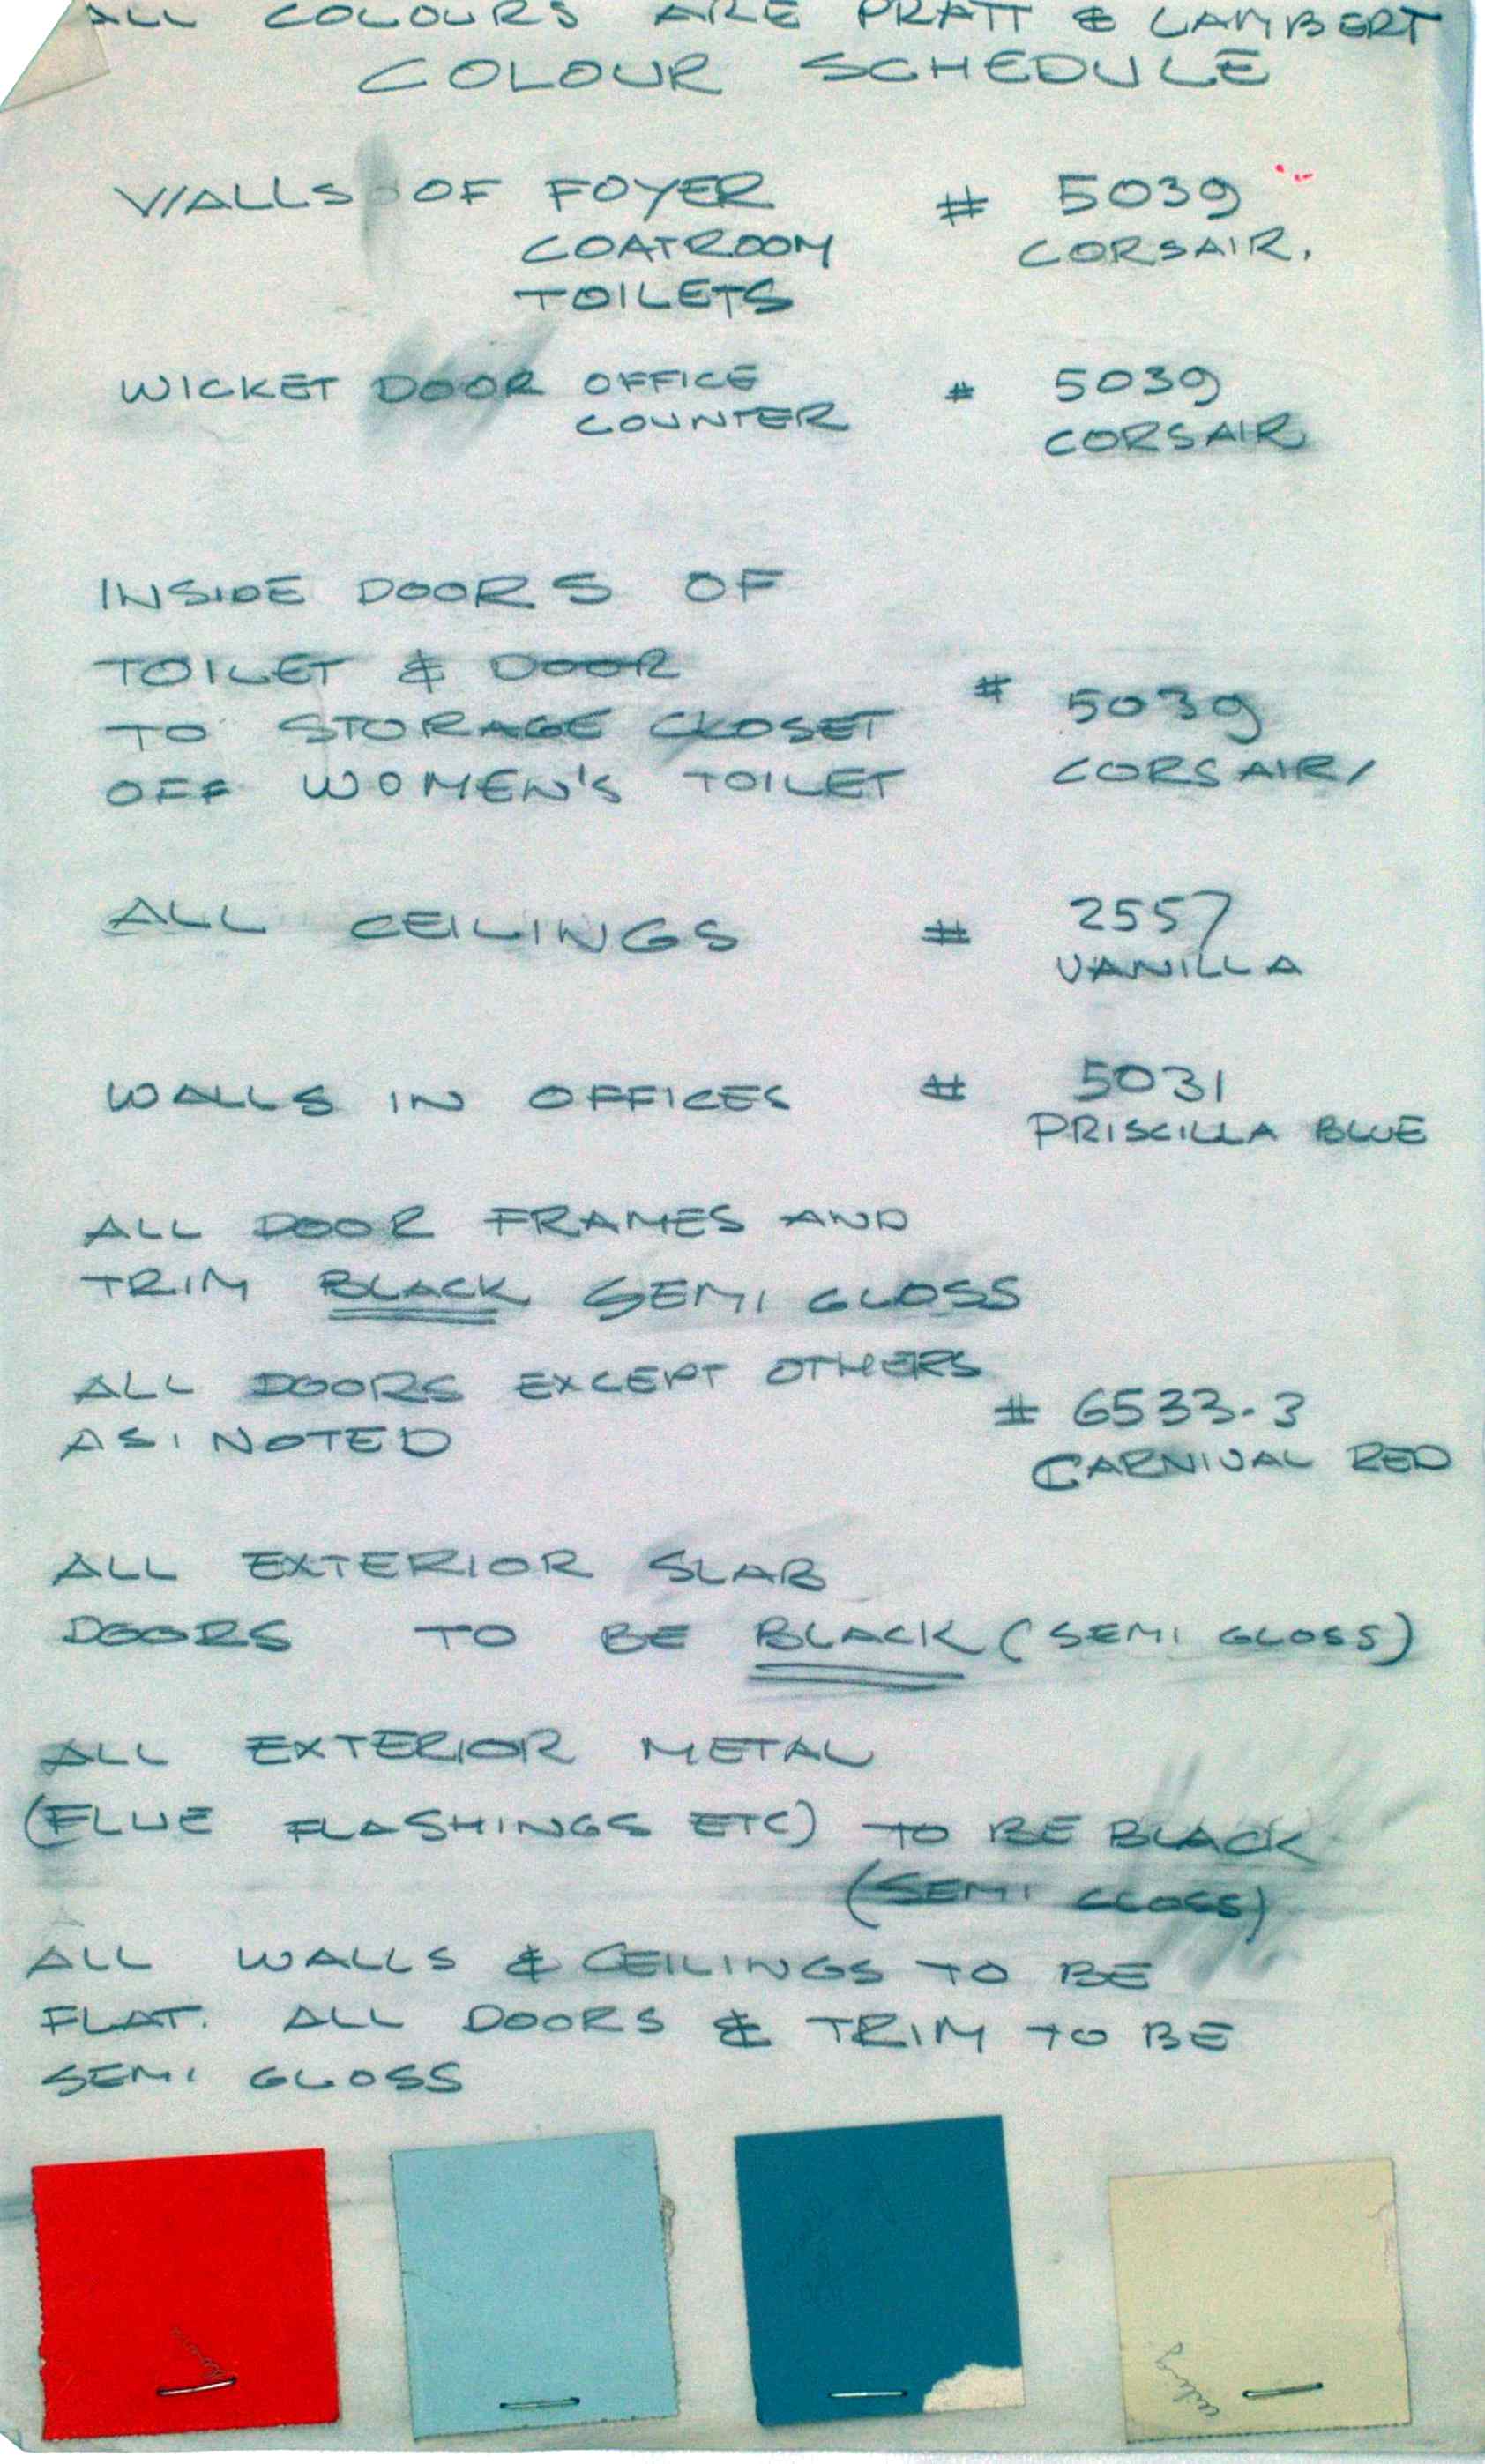 ALL COLOURS ARE PRATT & LAMBERT
COLOUR SCHEDULE
WALLS OF FOYER # 5039
COATROOM CORSAIR.
TOILETS
WICKET DOOR OFFICE # 5039
COUNTER CORSAIR
INSIDE DOORS OF
TOILET & DOOR # 5039
TO STORAGE CLOSET
OFF WOMEN'S TOILET CORSAIR
ALL CEILINGS # 2557
VANILLA
WALLS IN OFFICES # 5031
PRISCILLA BLUE
ALL DOOR FRAMES AND
TRIM BLACK SEMI GLOSS
ALL DOORS EXCEPT OTHERS # 6533-3
AS NOTED CARNIVAL RED
ALL EXTERIOR SLAB
DOORS TO BE BLACK (SEMI GLOSS)
ALL EXTERIOR METAL
(FLUE FLASHINGS ETC) TO BE BLACK
(SEMI GLOSS)
ALL WALLS & CEILINGS TO BE
FLAT. ALL DOORS & TRIM TO BE
SEMI GLOSS
ceiling